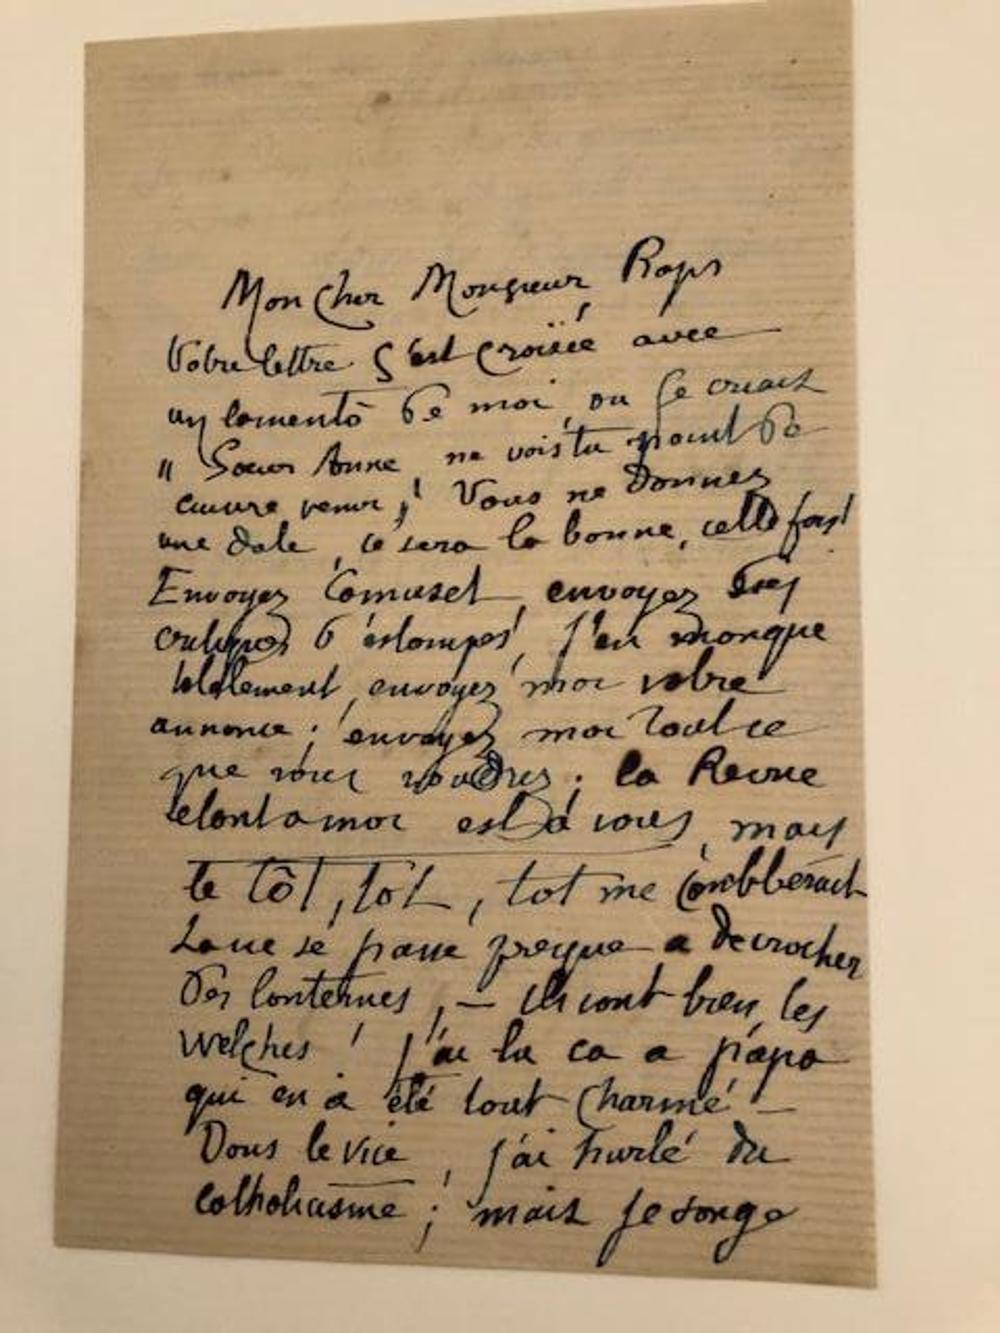 Mon cher Monsieur Rops
Votre lettre s'est croisée avec
un lamento de moi, ou je criais
" Soeur Anne, ne vois tu point de
cuivre venir ! Vous ne donnez
une date, ce sera la bonne, cette fois!
Envoyez Camuset, envoyez des
critiques d'estampes, j'en manque
totalement, envoyez moi votre
annonce ; envoyez moi tout ce
que vous voudrez ; la Revue
et
est à vous, mais
le tôt, tôt, tot me comblerait
se passe presque a décrocher
des lanternes, — Ils vont bien, les
welches ! J'ai lu ca a papa
qui en a été tout charmé —
Dans le vice, j'ai hurlé du
catholicisme ; mais je songe